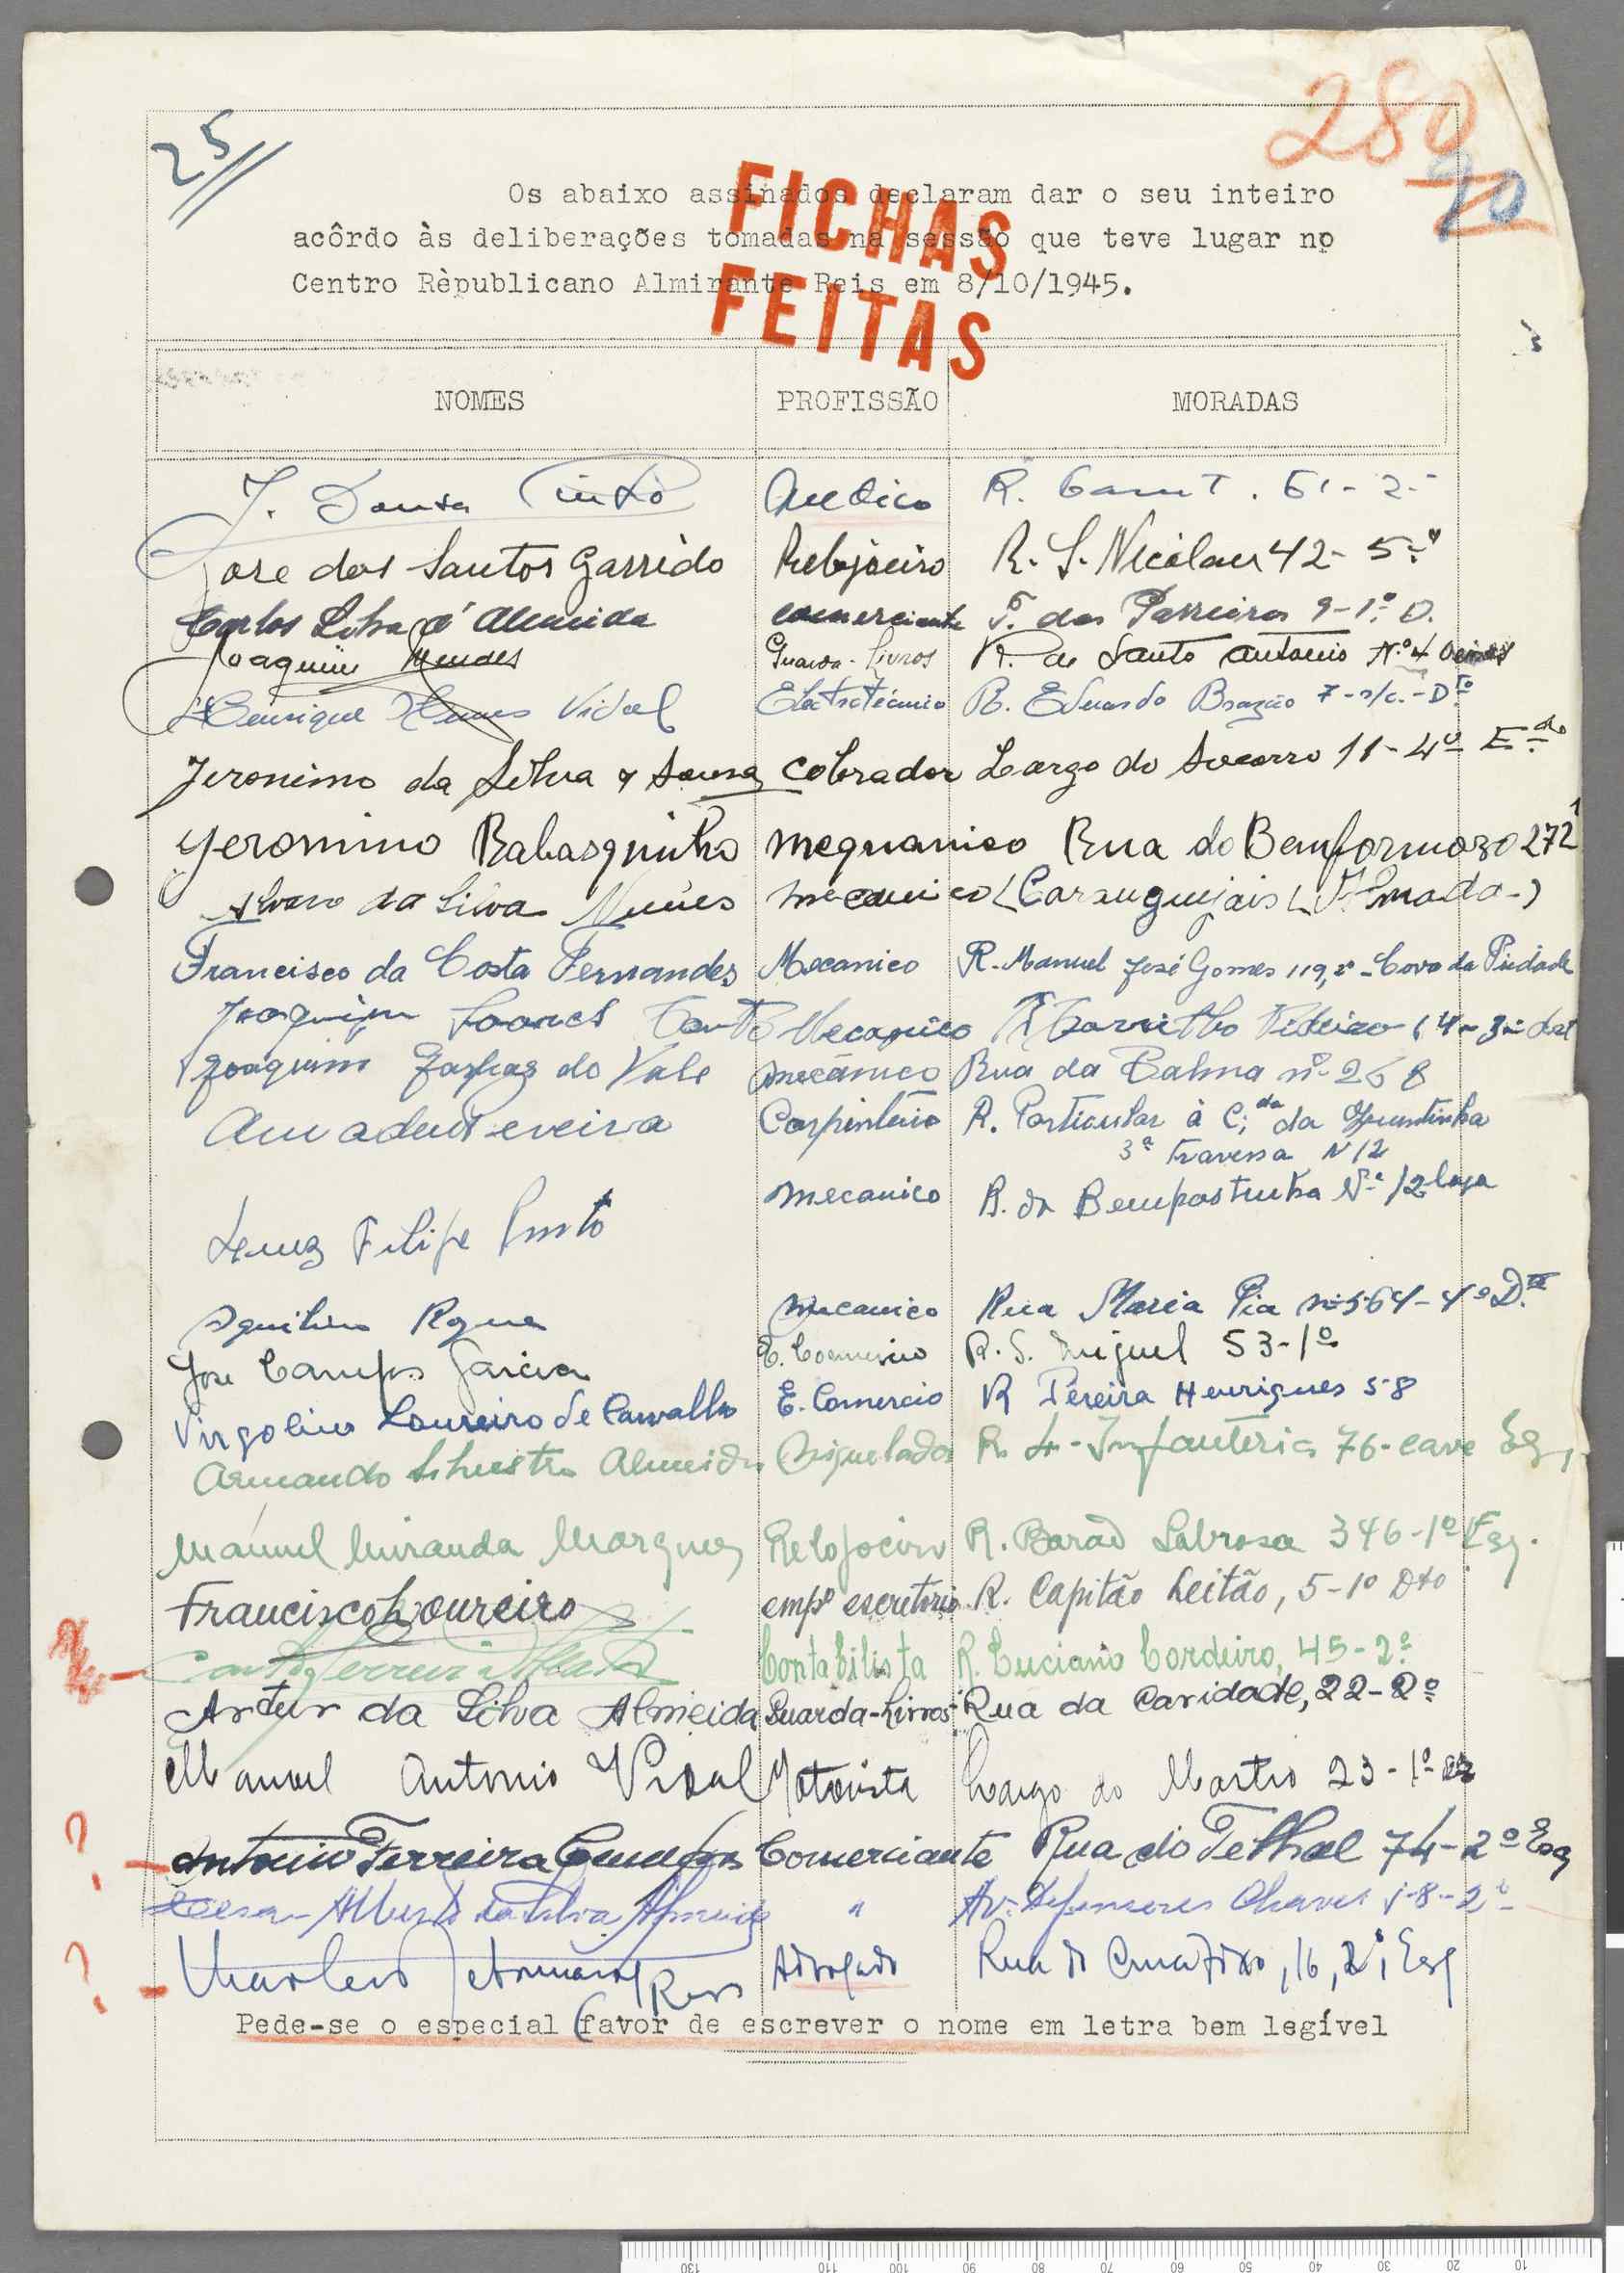 25
280
90
Os abaixo assinados declaram dar o seu inteiro
acôrdo às deliberações tomadas na sessão que teve lugar no
Centro Rèpublicano Almirante Reis em 8/10/1945.
FICHAS
FEITAS
NOMES PROFISSÃO MORADAS
J. Sousa Pinto Medico R. 61-2º
Jose dos Santos Garrido Relojoeiro R. S. Nicolau 42-5º
Carlos Silva d'Almeida comerciante T. das Parreiras 9-1º D.
Joaquim Mendes Guarda-Livros R. de Santo Antonio Nº 4
Henrique Vidal Electrotécnico R. Eduardo Brazão 7-r/c.-Dto
Jeronimo da Silva e Sousa Cobrador Largo do Socorro 11-4º Edo
Jeronimo Rabasquinho mequanico Rua do Bemformozo 272
Alvaro da Silva Nunes mecanico (Caranguejais) (Almada-)
Francisco da Costa Fernandes Mecanico R. Manuel José Gomes 119, 2º-Cova da Piedade
Joaquim Soares Mecanico
Joaquim do Vale mecânico Rua da Palma nº 268
Amadeu Pereira Carpinteiro R. Particular à C.da da Quintinha
3ª Travessa N 12
mecanico R. da Bempostinha Nº 12 loja
Filipe Pinto
Aquilino Roque mecanico Rua Maria Pia nº 564-4º D.to
Jose Campos Garcia E. Comercio R. S. Miguel 53-1º
Virgolino Loureiro de Carvalho E. Comercio R Pereira Henriques 58
Armando Silvestre Almeida Niquelador R. 4-Infanteria 76-cave Esq.
Manuel Miranda Marques Relojoeiro R. Barão Sabrosa 346-1º Esq.
Francisco Loureiro empº escritorio R. Capitão Leitão, 5-1º Dto
Contabilista R. Luciano Cordeiro, 45-2º
Artur da Silva Almeida Guarda-Livros Rua da Caridade, 22-2º
Manuel Antonio Vidal Motorista Largo do Mastro 23-1º
? Antonio Ferreira Comerciante Rua do Telhal 74-2º Esq
Cesar Alberto da Silva Almeida " Av. Defensores Chaves
? Advogado Rua do Crucifixo, 16, 2º, Esq
Pede-se o especial favor de escrever o nome em letra bem legível
130 110 100 90 80 70 60 50 40 30 20 10